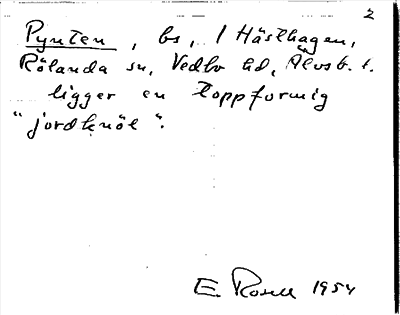 2
Pynten, bs, 1 Hästhagen,
Rölanda sn, Vedbo hd, Älvsb. l.
ligger en toppformig
"jordknöl".
E. Rosell 1954